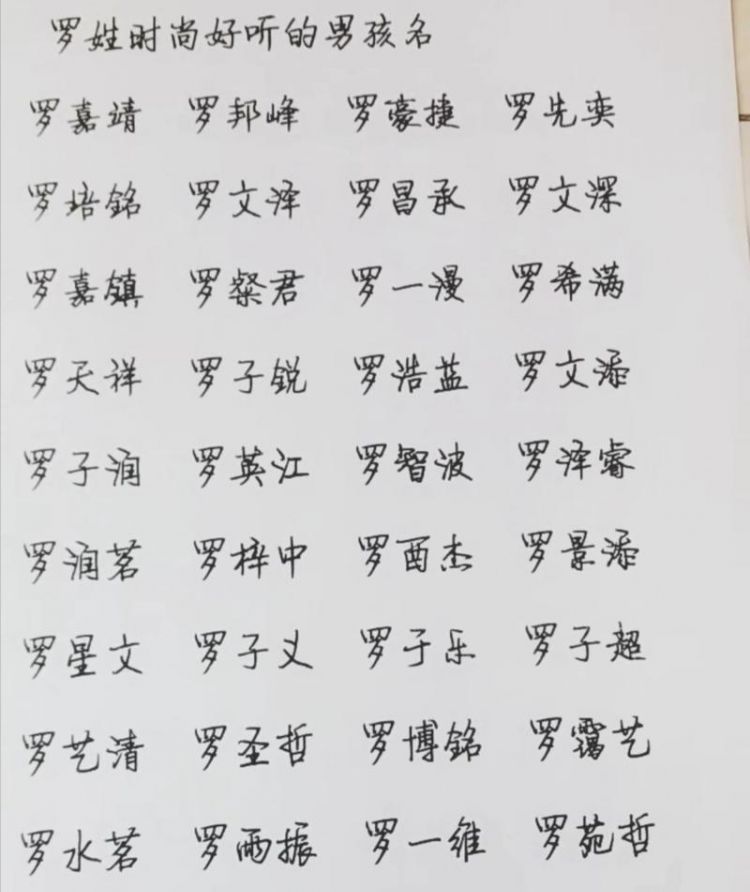 罗姓时尚好听的男孩名
罗嘉靖 罗邦峰 罗豪捷 罗先奕
罗培铭 罗文泽 罗昌承 罗文深
罗嘉镇 罗粲君 罗一漫 罗希满
罗天祥 罗子锐 罗浩蓝 罗文添
罗子润 罗英江 罗智波 罗泽睿
罗润茗 罗梓中 罗酉杰 罗景添
罗星文 罗子义 罗于乐 罗子超
罗艺清 罗圣哲 罗博铭 罗霭艺
罗水茗 罗雨振 罗一维 罗苑哲